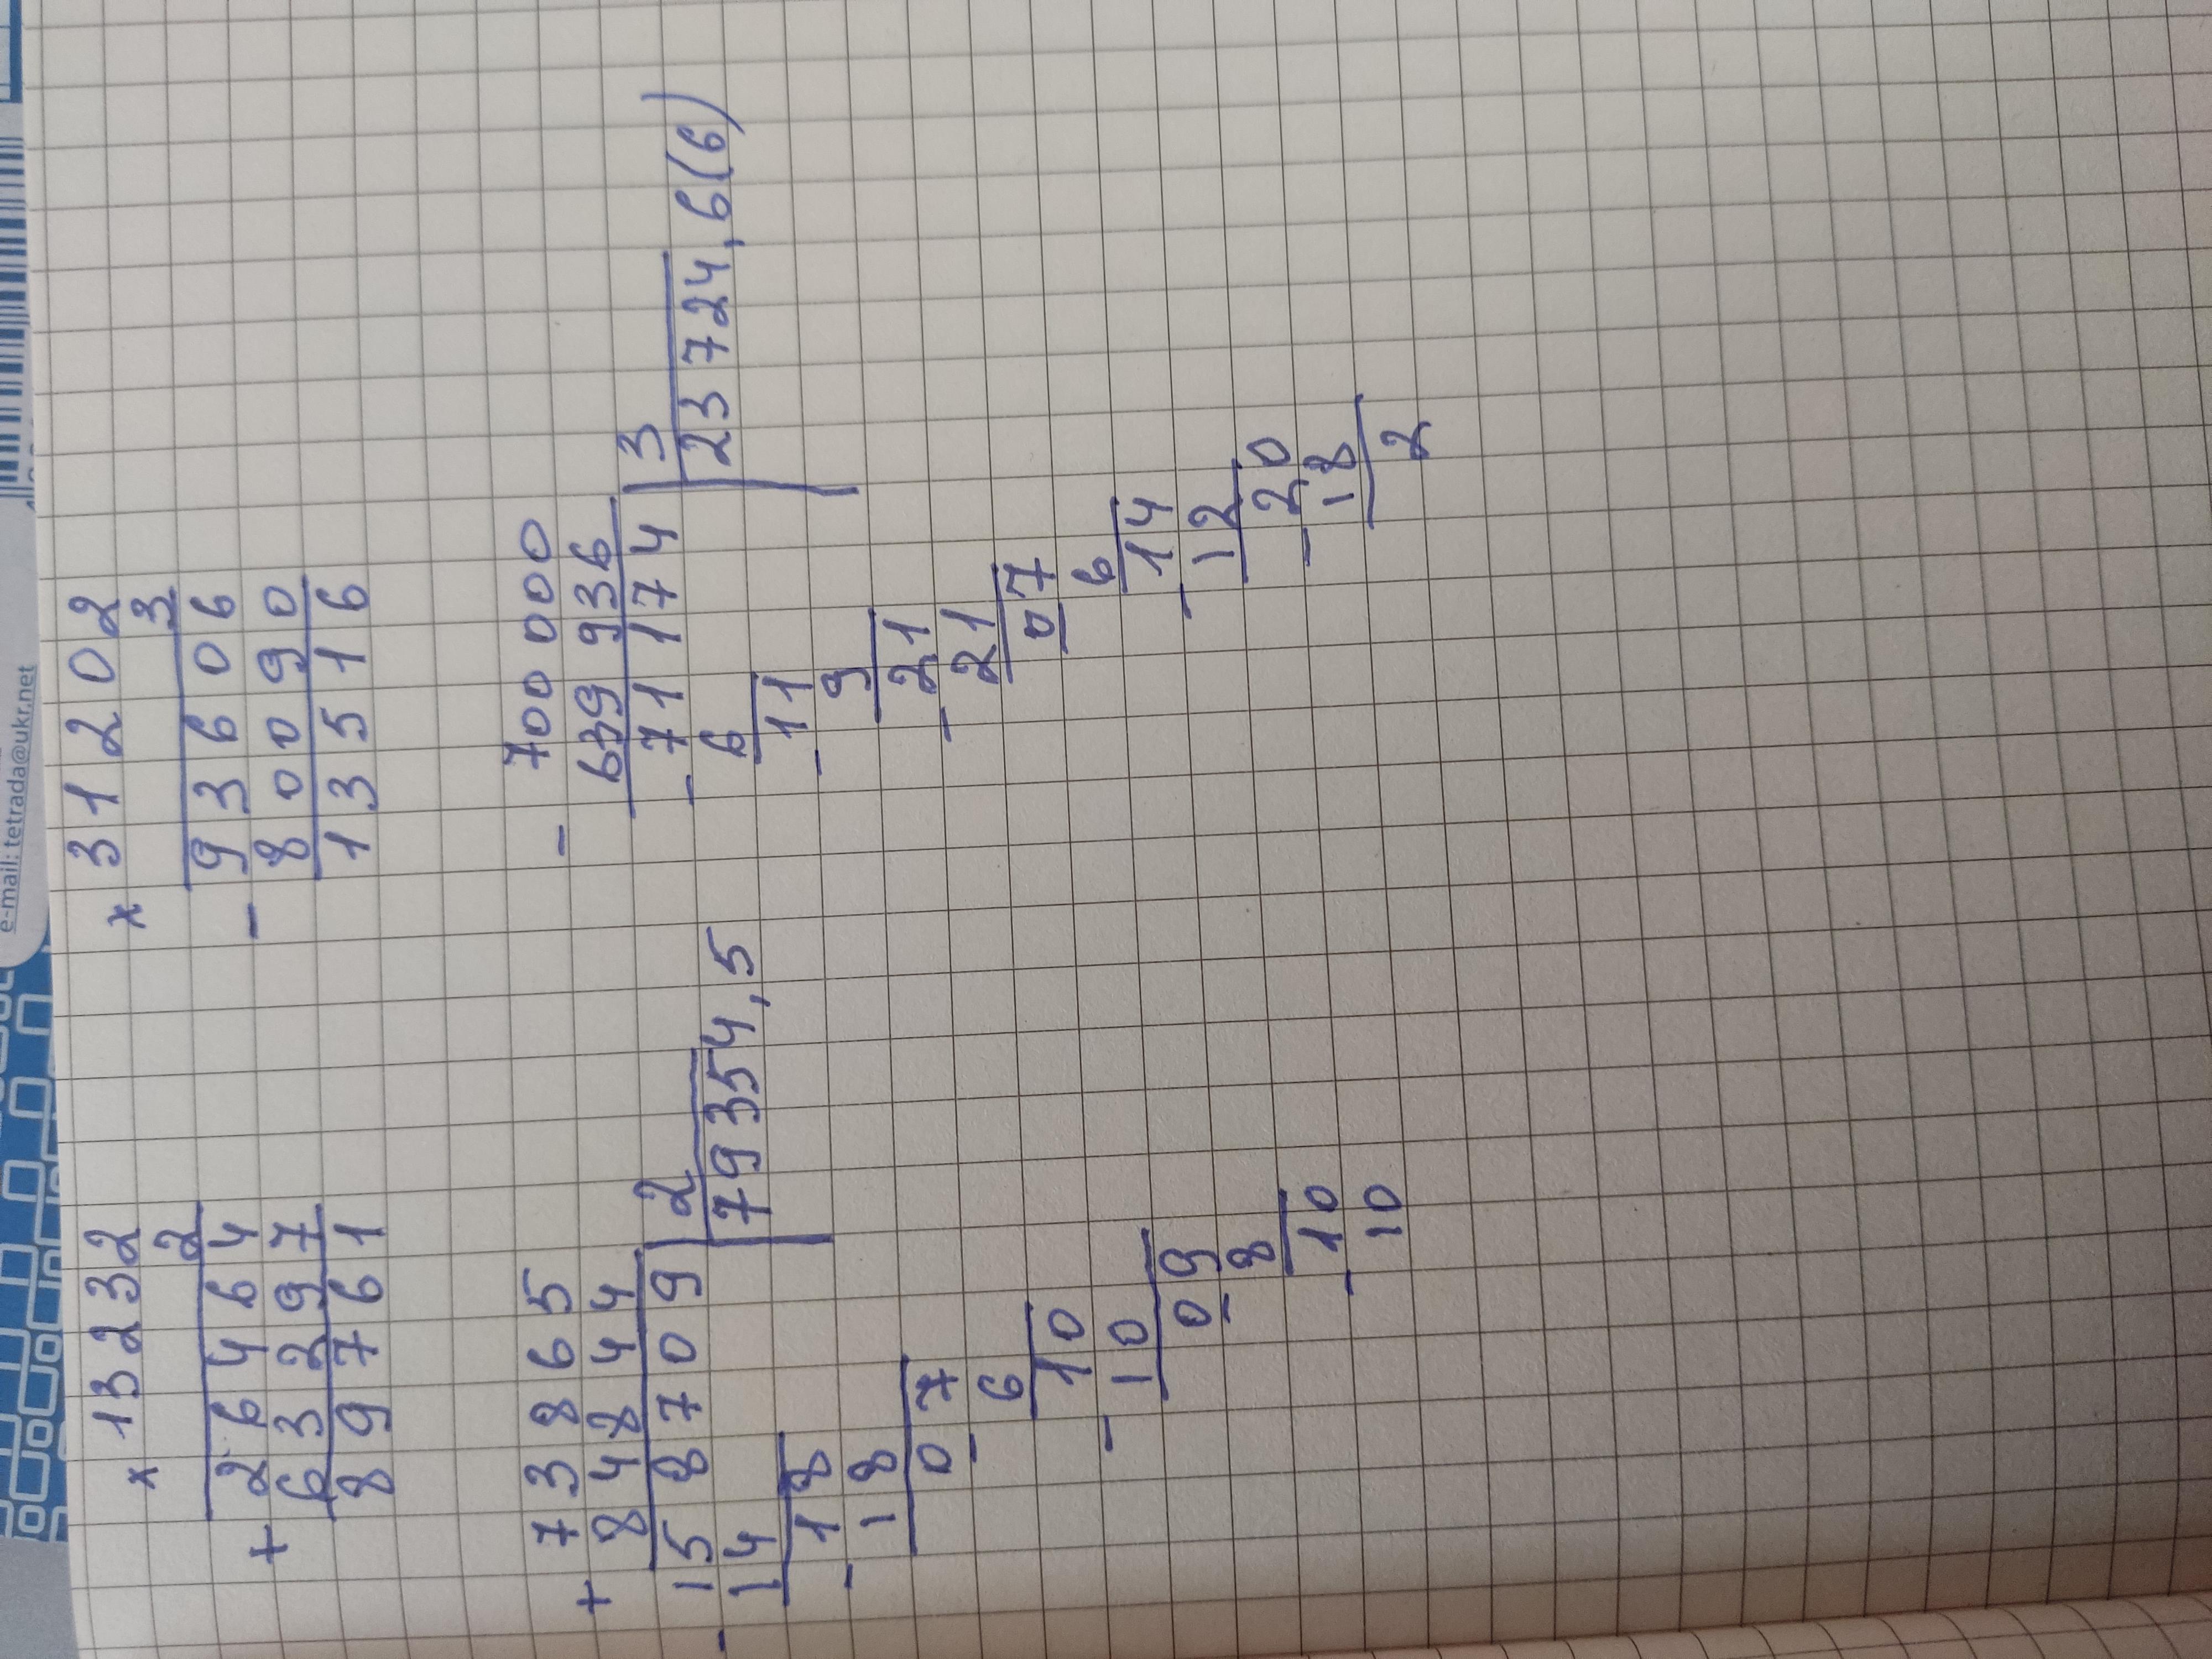 × 13232
2
26464
+ 63297
89761
73865
+ 84844
- 158709 | 2
14 | 79354,5
- 18
18
07
- 6
10
- 10
09
- 8
10
- 10
e-mail: tetrada@ukr.net
× 31202
3
93606
- 80090
13516
- 700 000
639 936
- 71 174 | 3
6 | 23724,6(6)
- 11
9
- 21
21
07
6
14
- 12
20
- 18
2